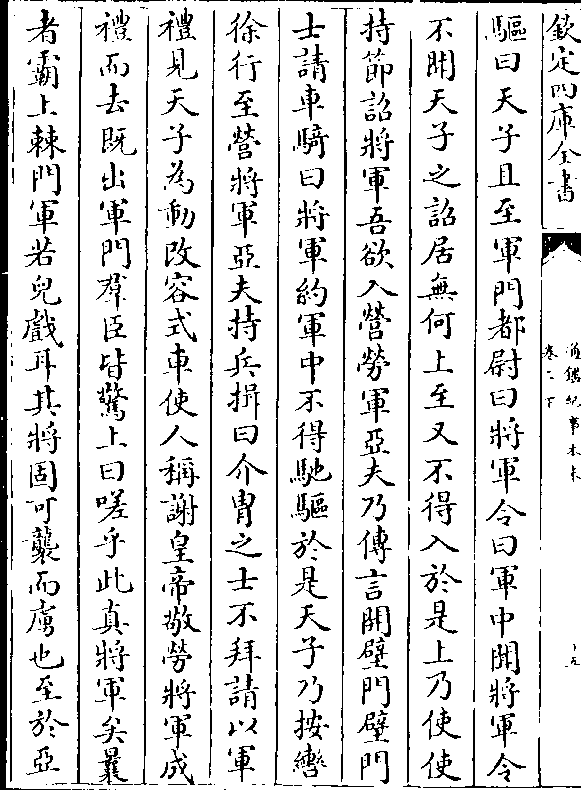 欽定四庫全書
通鑑紀事本末
卷二下
十五
驅曰天子且至軍門都尉曰將軍令曰軍中聞將軍令
不聞天子之詔居無何上至又不得入於是上乃使使
持節詔將軍吾欲入營勞軍亞夫乃傳言開壁門壁門
士請車騎曰將軍約軍中不得馳驅於是天子乃按轡
徐行至營將軍亞夫持兵揖曰介胄之士不拜請以軍
禮見天子為動改容式車使人稱謝皇帝敬勞將軍成
禮而去既出軍門羣臣皆驚上曰嗟乎此真將軍矣曩
者霸上棘門軍若兒戲耳其將固可襲而虜也至於亞